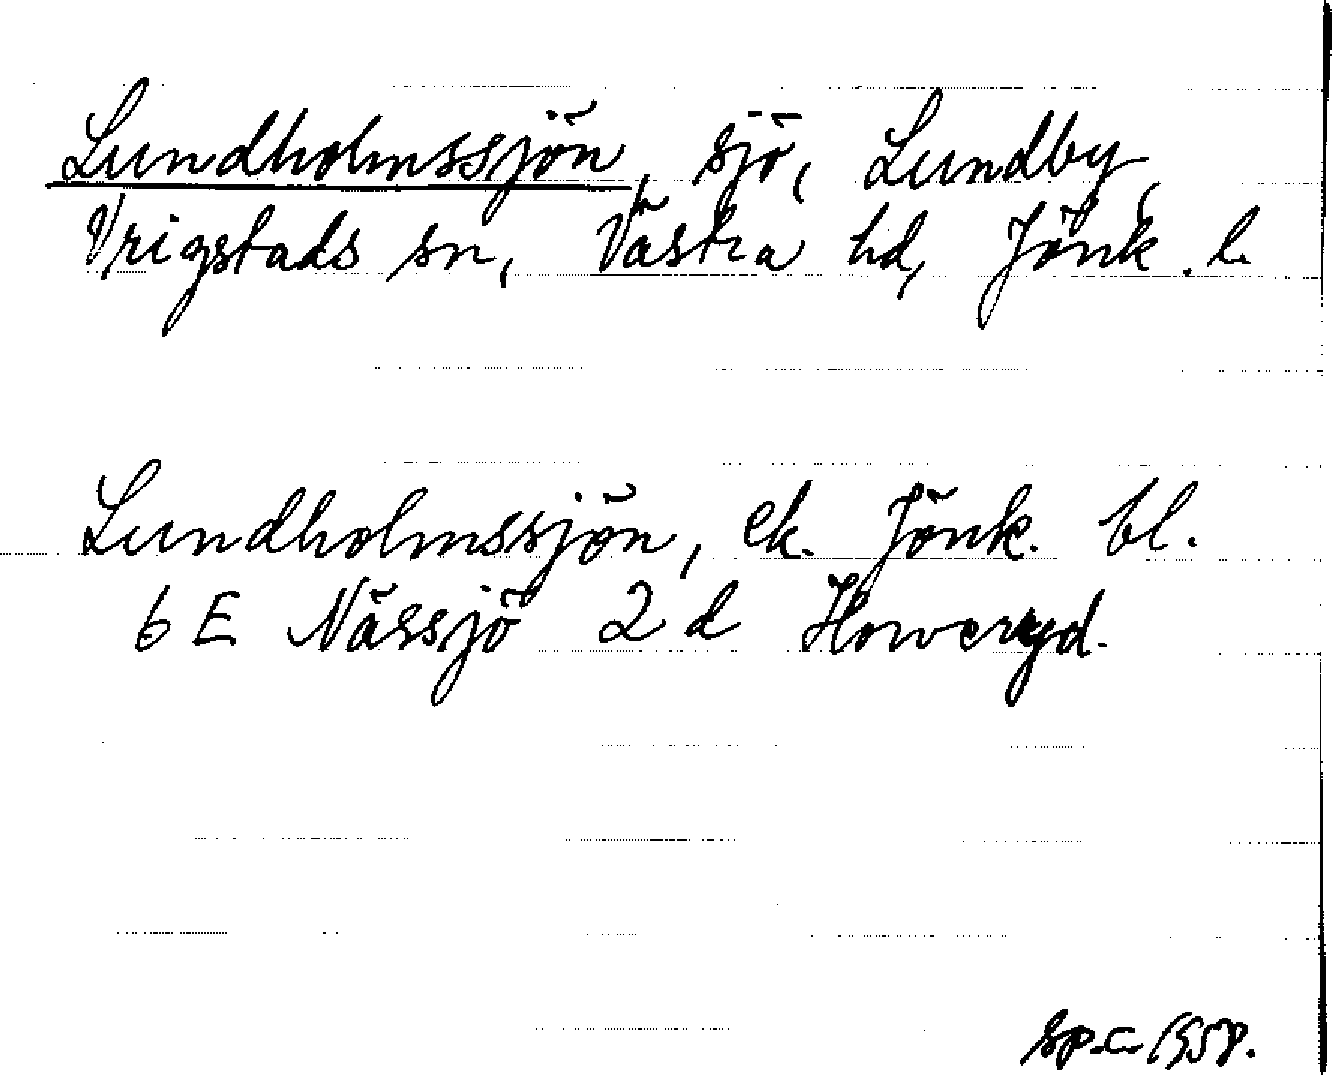 Lundholmssjön, sjö, Lundby,
Vrigstads sn, Västra hd, Jönk. l.
Lundholmssjön, ek. Jönk. bl.
6 E Nässjö 2 d Horveryd.